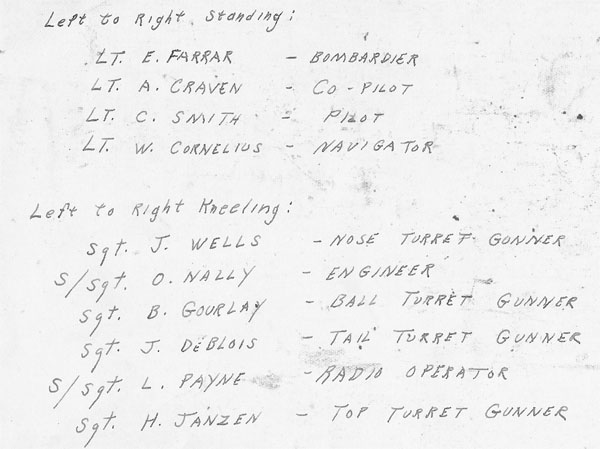 Left to Right Standing:
LT. E. FARRAR - BOMBARDIER
LT. A. CRAVEN - CO-PILOT
LT. C. SMITH - PILOT
LT. W. CORNELIUS - NAVIGATOR
Left to Right Kneeling:
Sgt. J. WELLS - NOSE TURRET GUNNER
S/Sgt. O. NALLY - ENGINEER
Sgt. B. GOURLAY - BALL TURRET GUNNER
Sgt. J. DeBLOIS - TAIL TURRET GUNNER
S/Sgt. L. PAYNE - RADIO OPERATOR
Sgt. H. JANZEN - TOP TURRET GUNNER